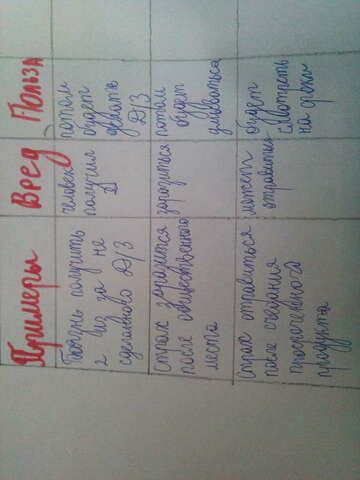 Примеры
Вред
Польза
Боязнь получить
2 из за не
сделанного Д/З
человек
получил
2
потом
будет
делать
Д/З
страх заразится
после общественного
места
заразиться
потом
будет
Страх отравиться
после съедания
просроченного
продукта
может
отравиться
будет
смотреть
на сроки